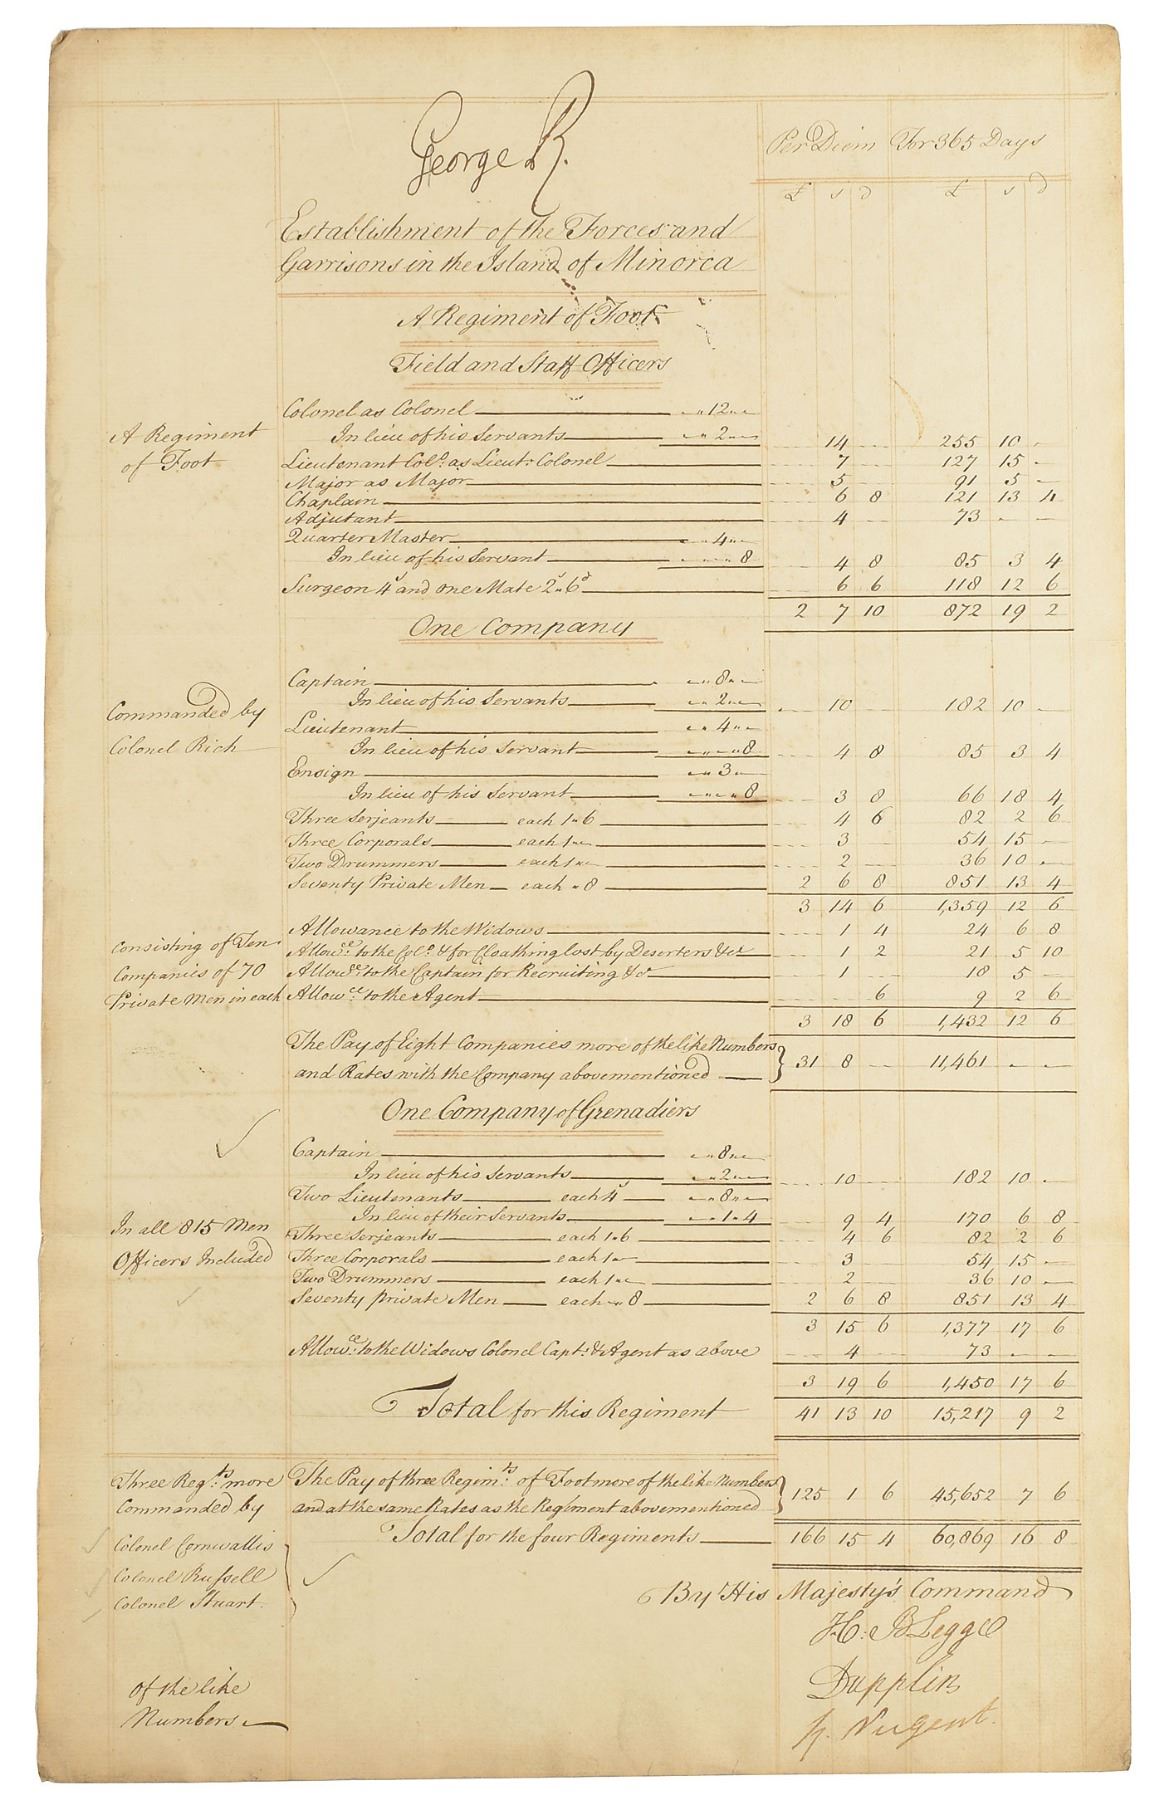 George R.
Per Diem For 365 Days
£ s d £ s d
Establishment of the Forces and
Garrisons in the Island of Minorca
A Regiment of Foot
Field and Staff Officers
A Regiment
of Foot
Colonel as Colonel „ „ 12 „ „
In lieu of his Servants „ „ 2 „ „ 14 255 10
Lieutenant Col.º as Lieut.t Colonel 7 127 15
Major as Major 5 91 5
Chaplain 6 8 121 13 4
Adjutant 4 73
Quarter Master „ „ 4 „ „
In lieu of his Servant „ „ 8 4 8 85 3 4
Surgeon 4s and one Mate 2s„6d 6 6 118 12 6
2 7 10 872 19 2
One Company
Commanded by
Colonel Rich
Captain „ „ 8 „ „
In lieu of his Servants „ „ 2 „ „ 10 182 10
Lieutenant „ „ 4 „ „
In lieu of his Servant „ „ 8 4 8 85 3 4
Ensign „ „ 3 „
In lieu of his Servant „ „ 8 3 8 66 18 4
Three Serjeants each 1„6 4 6 82 2 6
Three Corporals each 1„„ 3 54 15
Two Drummers each 1„„ 2 36 10
Seventy Private Men each „8 2 6 8 851 13 4
3 14 6 1,359 12 6
Consisting of Ten
Companies of 70
Private Men in each
Allowance to the Widows 1 4 24 6 8
Allow.ce to the Col.º & for Cloathing lost by Deserters &c.a 1 2 21 5 10
Allow.ce to the Captain for Recruiting &c.a 1 18 5
Allow.ce to the Agent 6 9 2 6
3 18 6 1,432 12 6
The Pay of Eight Companies more of the like Numbers
and Rates with the Company abovementioned } 31 8 11,461
One Company of Grenadiers
Captain „ „ 8 „ „
In lieu of his Servants „ „ 2 „ „ 10 182 10
Two Lieutenants each 4s „ „ 8 „ „
In lieu of their Servants „ „ 1 „ 4 9 4 170 6 8
In all 815 Men
Officers Included
Three Serjeants each 1„6 4 6 82 2 6
Three Corporals each 1„ 3 54 15
Two Drummers each 1„„ 2 36 10
Seventy private Men each „ 8 2 6 8 851 13 4
3 15 6 1,377 17 6
Allow.ce to the Widows Colonel Capt.n & Agent as above 4 73
3 19 6 1,450 17 6
Total for this Regiment 41 13 10 15,217 9 2
Three Reg.ts more
Commanded by
Colonel Cornwallis
Colonel Russell
Colonel Stuart.
The Pay of three Regim.ts of Foot more of the like Numbers
and at the same Rates as the Regiment abovementioned } 125 1 6 45,652 7 6
Total for the four Regiments 166 15 4 60,869 16 8
By His Majesty's Command
H: B Legge
Dupplin
R. Nugent.
Of the like
Numbers